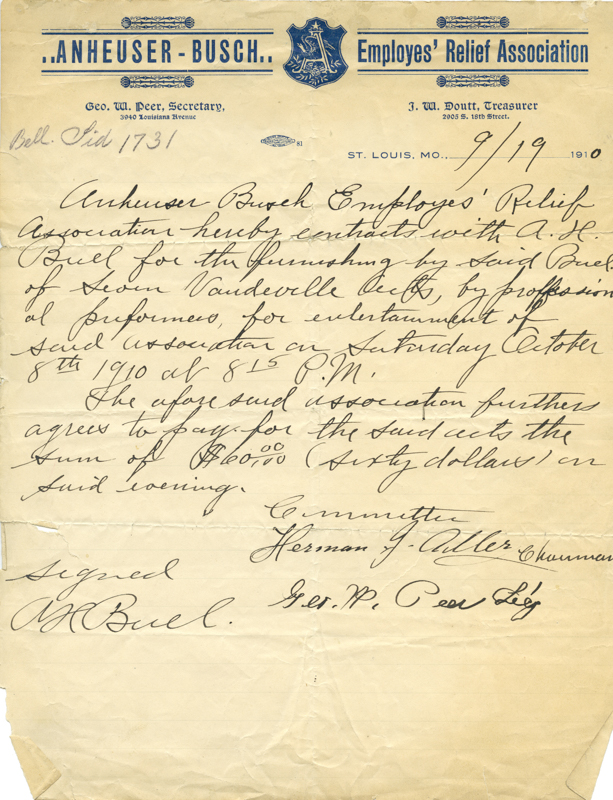 ..ANHEUSER-BUSCH.. Employes' Relief Association
Geo. W. Peer, Secretary, J. W. Doutt, Treasurer
3940 Louisiana Avenue 2905 S. 18th Street.
Bell. Sid 1731
81
ST. LOUIS, MO., 9/19 1910
Anheuser Busch Employes' Relief
Association hereby contracts with A. H.
Buel for the furnishing by said Buel
of Seven Vaudeville Acts, by profession
al preformers, for entertainment of
said association on Saturday October
8th 1910 at 8 15 P.M.
The afore said association furthers
agrees to pay for the said acts the
sum of $60.00 (sixty dollars) on
said evening.
Committee
Herman J. Adler Chairman
Signed
Geo. W. Peer Sec'y
AH Buel.